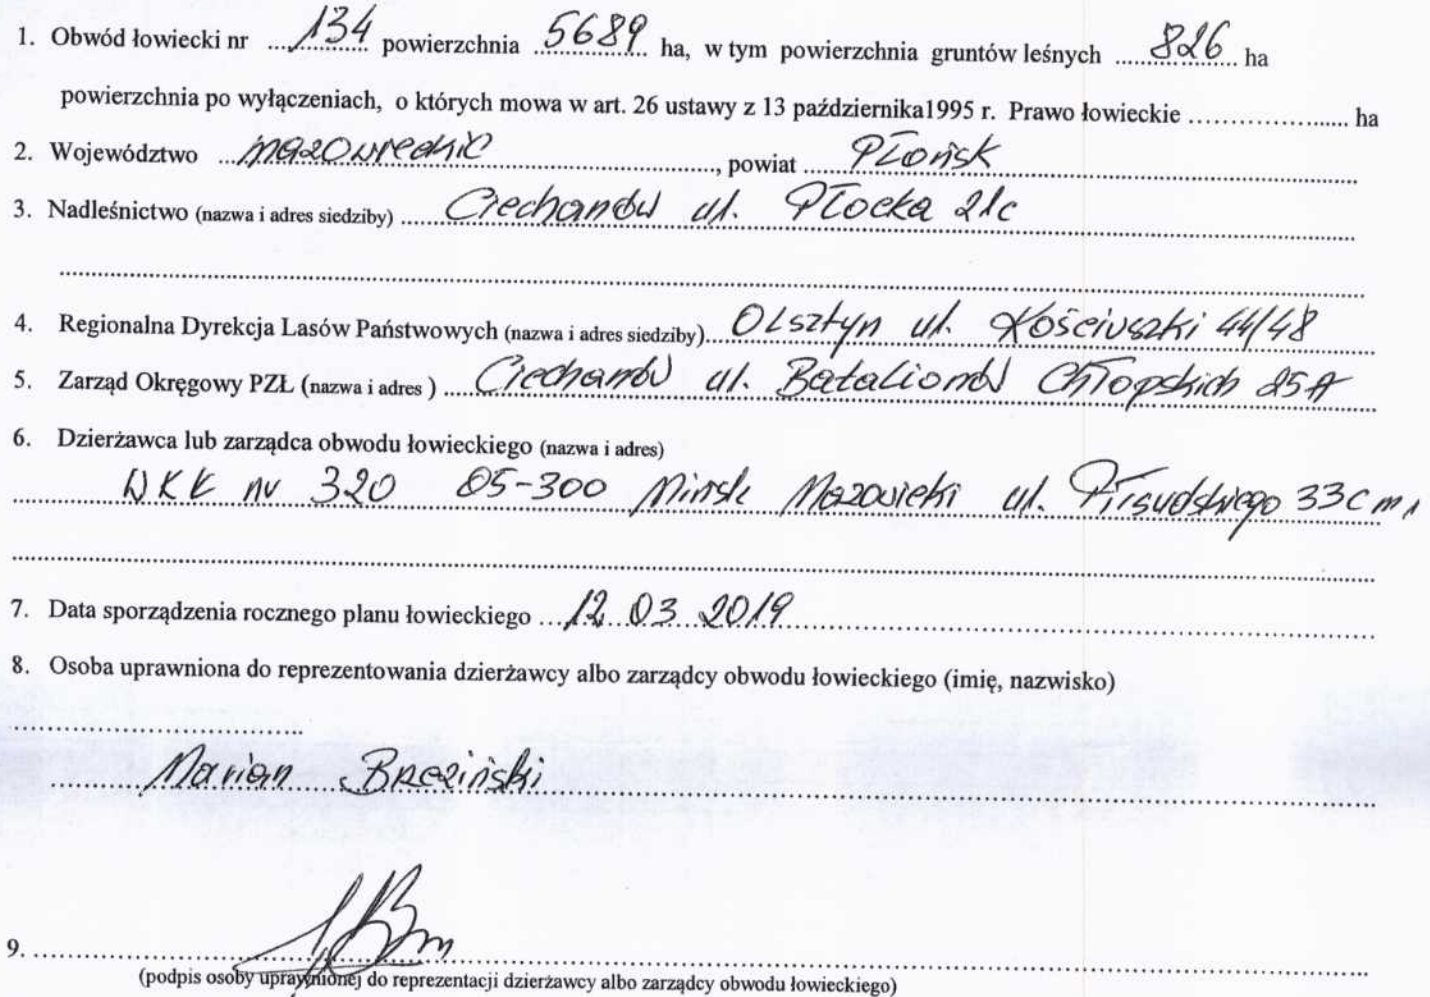 1. Obwód łowiecki nr ....134 powierzchnia 5689 ha, w tym powierzchnia gruntów leśnych .....826.. ha
powierzchnia po wyłączeniach, o których mowa w art. 26 ustawy z 13 października1995 r. Prawo łowieckie ...................... ha
2. Województwo ...mazowieckie......, powiat ....Płońsk......
3. Nadleśnictwo (nazwa i adres siedziby) .....Ciechanów ul. Płocka 21c......
4. Regionalna Dyrekcja Lasów Państwowych (nazwa i adres siedziby)...Olsztyn ul. Kościuszki 44/48
5. Zarząd Okręgowy PZŁ (nazwa i adres ) .....Ciechanów ul. Batalionów Chłopskich 25A
6. Dzierżawca lub zarządca obwodu łowieckiego (nazwa i adres)
WKŁ nr 320 05-300 Mińsk Mazowiecki ul. Piłsudskiego 33c m 1
7. Data sporządzenia rocznego planu łowieckiego ...12.03.2019......
8. Osoba uprawniona do reprezentowania dzierżawcy albo zarządcy obwodu łowieckiego (imię, nazwisko)
Marian Brzeziński
9. ......
(podpis osoby uprawnionej do reprezentacji dzierżawcy albo zarządcy obwodu łowieckiego)